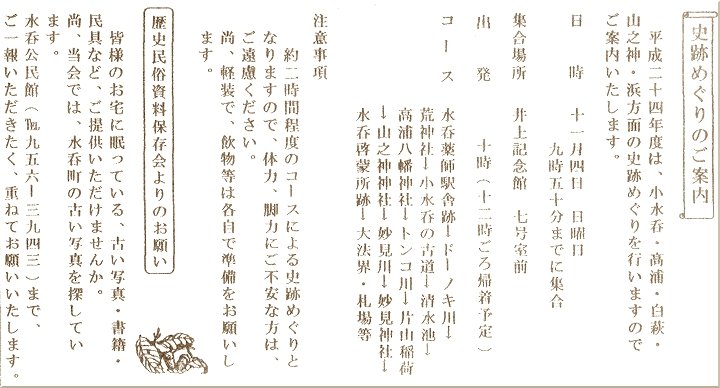 史跡めぐりのご案内
平成二十四年度は、小水呑・高浦・白萩・
山之神・浜方面の史跡めぐりを行いますので
ご案内いたします。
日時 十一月四日 日曜日
九時五十分までに集合
集合場所 井上記念館 七号室前
出発 十時(十二時ごろ帰着予定)
コース 水呑薬師駅舎跡→ドーノキ川→
荒神社→小水呑の古道→清水池→
高浦八幡神社→トンコ川→片山稲荷
→山之神神社→妙見川→妙見神社→
水呑啓蒙所跡→大法界・札場等
注意事項
約二時間程度のコースによる史跡めぐりと
なりますので、体力、脚力にご不安な方は、
ご遠慮ください。
尚、軽装で、飲物等は各自で準備をお願いし
ます。
歴史民俗資料保存会よりのお願い
皆様のお宅に眠っている、古い写真・書籍・
民具など、ご提供いただけませんか。
尚、当会では、水呑町の古い写真を探してい
ます。
水呑公民館(℡九五六ー三九四三)まで、
ご一報いただきたく、重ねてお願いいたします。